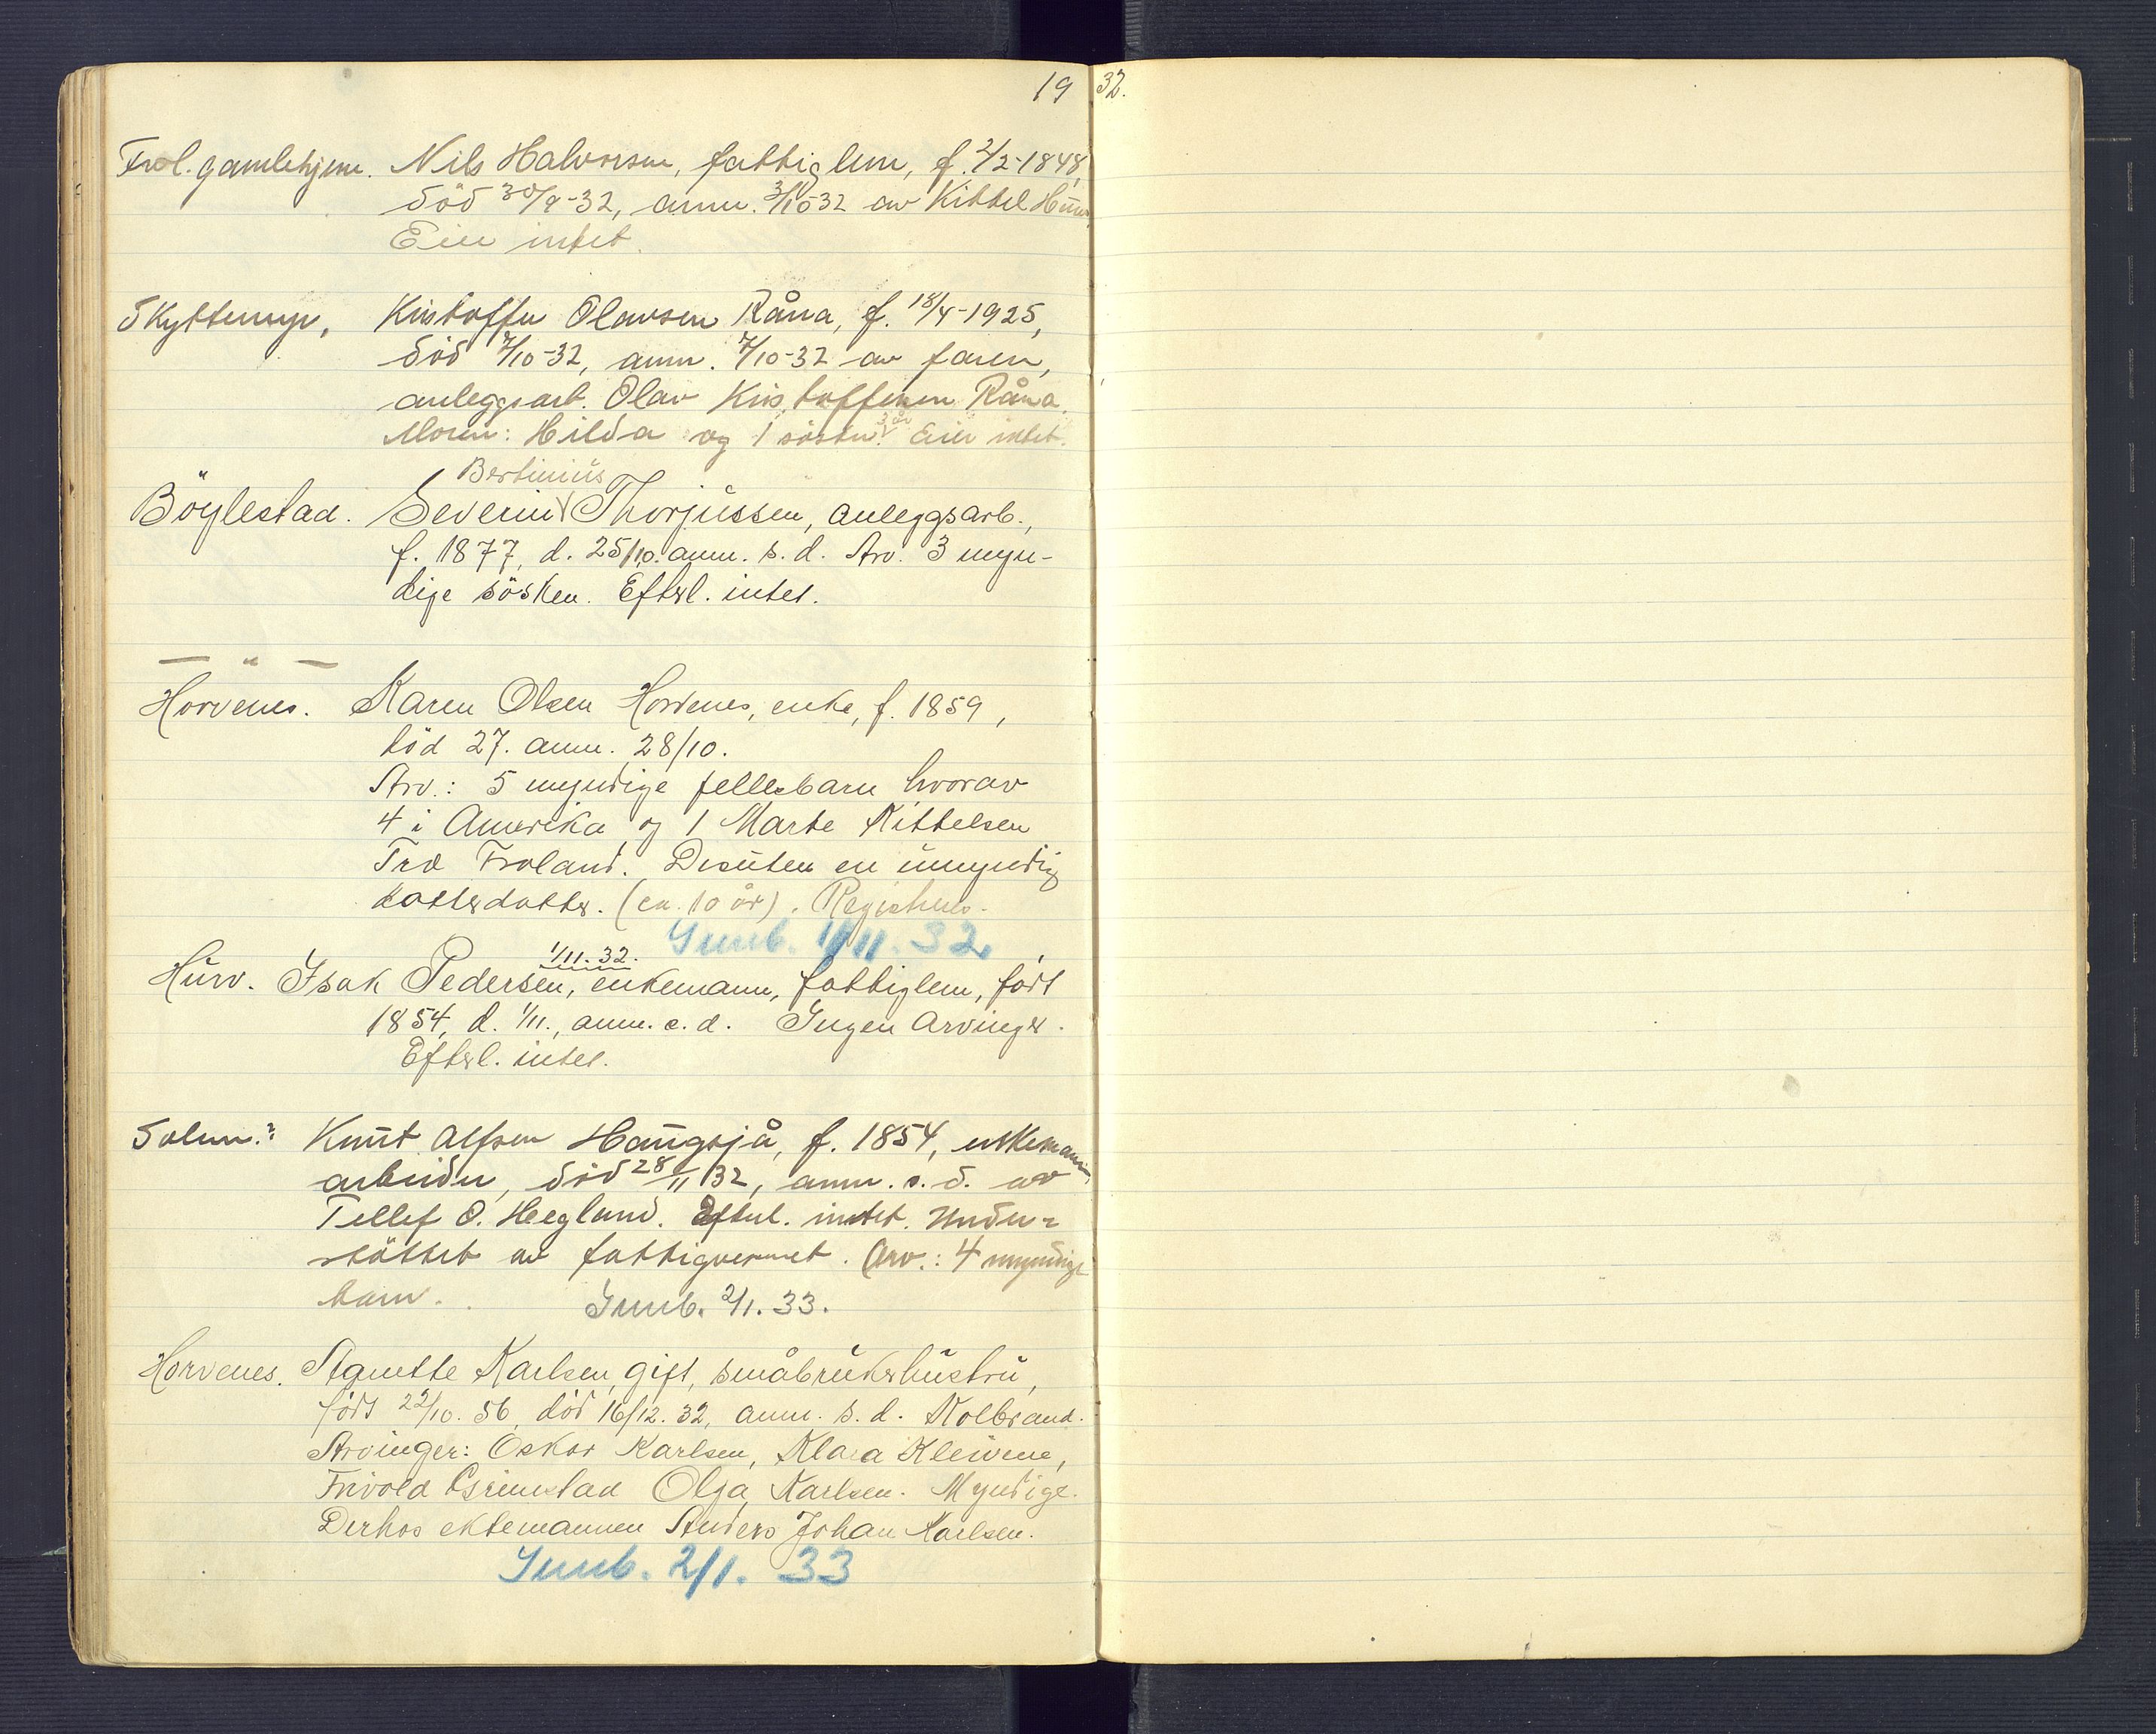 1932.
Frol. gamlehjem. Nils Halvorsen, fattiglem, f. 2/2-1848,
död 30/9-32, anm. 3/10-32 av Kittel Hurv
Eier intet.
Skyttemyr, Kristoffer Olavsen Råna, f. 18/4-1925,
död 7/10-32, anm. 7/10-32 av faren,
anleggsarb. Olav Kristoffersen Råna.
Moren: Hilda og 1 söster 3 år Eier intet.
Bertinius
Böylestad. Severin Thorjussen, anleggsarb.,
f. 1877, d. 25/10. anm. s. d. Arv. 3 myn-
dige sösken. Efterl. intet.
— " —
Horvenes. Karen Olsen Horvenes, enke, f. 1859,
död 27. anm. 28/10.
Arv.: 5 myndige fellesbarn hvorav
4 i Amerika og 1 Marte Kittelsen
Træ Froland. Desuten en umyndig
datterdatter. (ca. 10 år). Registreres.
Innb. 1/11. 32.
1/11. 32.
Hurv. Isak Pedersen, enkemann, fattiglem, født
1854, d. 1/11., anm. s. d. Ingen arvinger.
Efterl. intet.
Solem.? Knut Alfsen Haugsjå, f. 1854, enkemann,
arbeider, död 28/11 32, anm. s. d. av
Tellef O. Hegland. Efterl. intet. Under-
støttet av fattigvesenet. Arv.: 4 myndige
barn. Innb. 2/1. 33.
Horvenes. Agnethe Karlsen, gift, småbrukerhustru,
född 22/10. 56, död 16/12. 32, anm. s. d. Kolbrand.
Arvinger: Oskar Karlsen, Klara Kleivene,
Frivold Grimstad Olga Karlsen. Myndige.
Derhos ektemannen Anders Johan Karlsen.
Innb. 2/1. 33